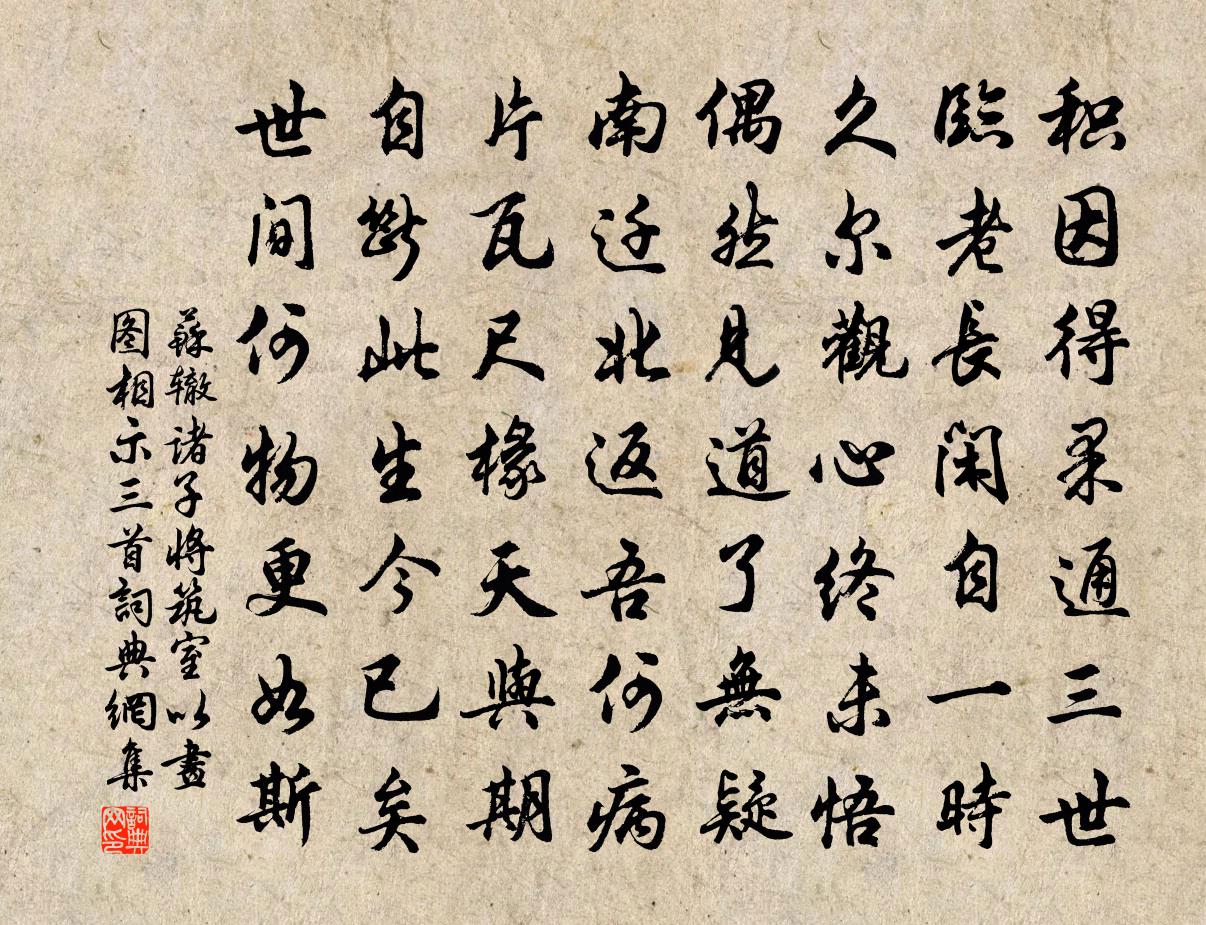 积因得果通三世
臨老長閑自一時
久尔觀心終未悟
偶然見道了無疑
南迁北返吾何病
片瓦尺椽天與期
自斷此生今已矣
世間何物更如斯
蘇辙诸子将筑室以畫
图相示三首詞典網集
詞典網印